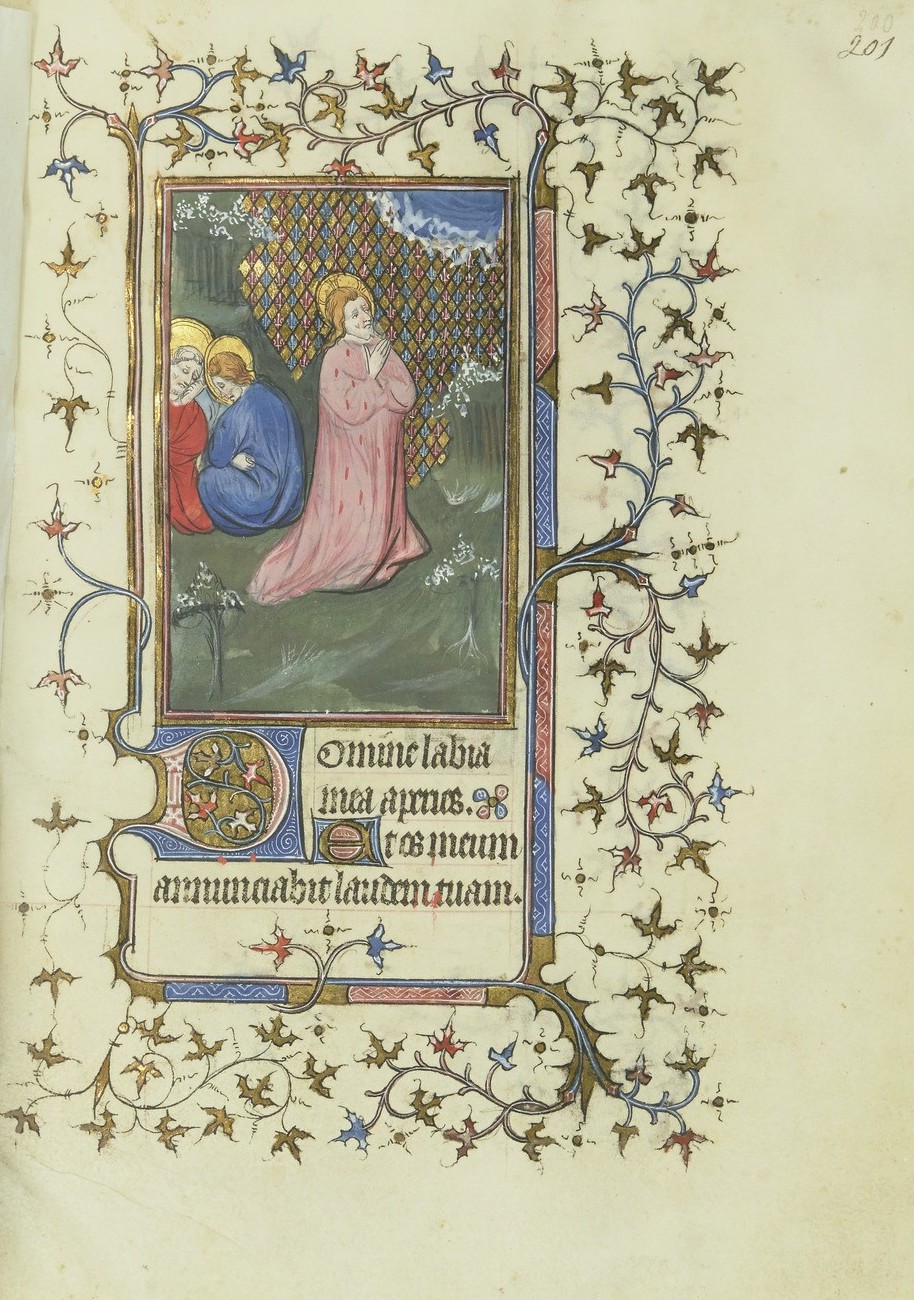 220
201
Domine labia
mea aperies.
Et os meum
annunciabit laudem tuam.